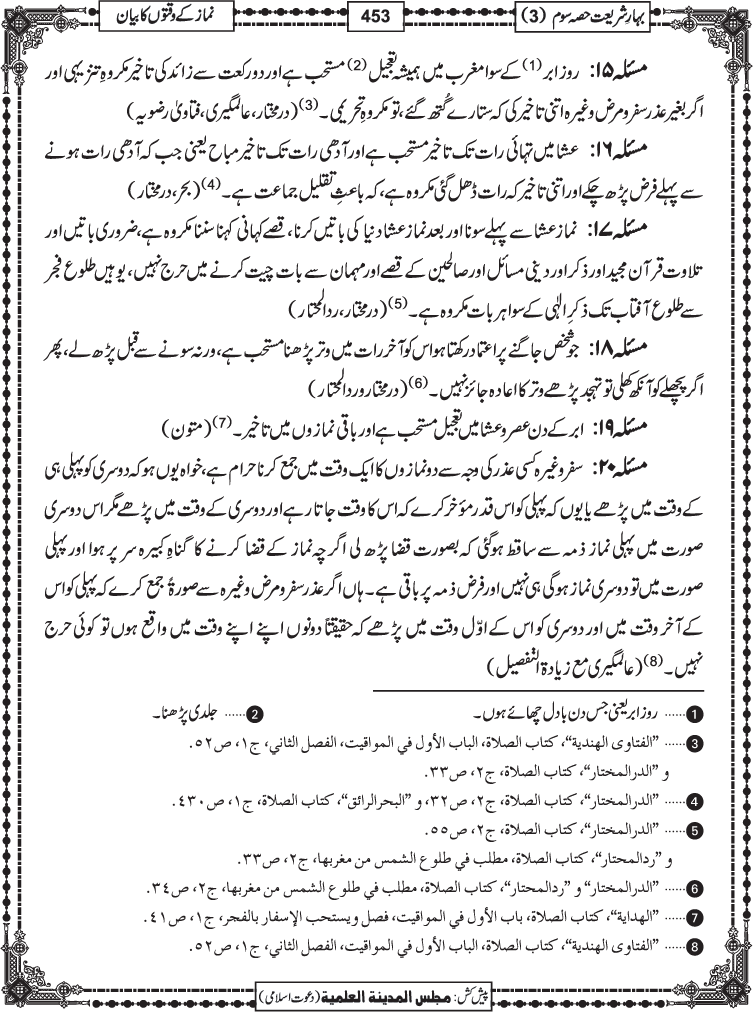 بہارِ شریعت حصہ سوم (3)
453
نماز کے وقتوں کا بیان
مسئلہ ۱۵: روز ابر (1) کے سوا مغرب میں ہمیشہ تعجیل (2) مستحب ہے اور دو رکعت سے زائد کی تاخیر مکروہِ تنزیہی اور
اگر بغیر عذر سفر و مرض وغیرہ اتنی تاخیر کی کہ ستارے گُتھ گئے، تو مکروہِ تحریمی۔ (3) (درمختار، عالمگیری، فتاویٰ رضویہ)
مسئلہ ۱۶: عشا میں تہائی رات تک تاخیر مستحب ہے اور آدھی رات تک تاخیر مباح یعنی جب کہ آدھی رات ہونے
سے پہلے فرض پڑھ چکے اور اتنی تاخیر کہ رات ڈھل گئی مکروہ ہے، کہ باعثِ تقلیلِ جماعت ہے۔ (4) (بحر، درمختار)
مسئلہ ۱۷: نماز عشا سے پہلے سونا اور بعد نماز عشا دنیا کی باتیں کرنا، قصے کہانی کہنا سننا مکروہ ہے، ضروری باتیں اور
تلاوت قرآن مجید اور ذکر اور دینی مسائل اور صالحین کے قصے اور مہمان سے بات چیت کرنے میں حرج نہیں، یوہیں طلوع فجر
سے طلوع آفتاب تک ذکرِ الٰہی کے سوا ہر بات مکروہ ہے۔ (5) (درمختار، ردالمحتار)
مسئلہ ۱۸: جو شخص جاگنے پر اعتماد رکھتا ہو اس کو آخر رات میں وتر پڑھنا مستحب ہے، ورنہ سونے سے قبل پڑھ لے، پھر
اگر پچھلے کو آنکھ کھلی تو تہجد پڑھے وتر کا اعادہ جائز نہیں۔ (6) (درمختار و ردالمحتار)
مسئلہ ۱۹: ابر کے دن عصر و عشا میں تعجیل مستحب ہے اور باقی نمازوں میں تاخیر۔ (7) (متون)
مسئلہ ۲۰: سفر وغیرہ کسی عذر کی وجہ سے دو نمازوں کا ایک وقت میں جمع کرنا حرام ہے، خواہ یوں ہو کہ دوسری کو پہلی ہی
کے وقت میں پڑھے یا یوں کہ پہلی کو اس قدر مؤخر کرے کہ اس کا وقت جاتا رہے اور دوسری کے وقت میں پڑھے مگر اس دوسری
صورت میں پہلی نماز ذمہ سے ساقط ہوگئی کہ بصورت قضا پڑھ لی اگرچہ نماز کے قضا کرنے کا گناہِ کبیرہ سر پر ہوا اور پہلی
صورت میں تو دوسری نماز ہوگی ہی نہیں اور فرض ذمہ پر باقی ہے۔ ہاں اگر عذر سفر و مرض وغیرہ سے صورۃً جمع کرے کہ پہلی کو اس
کے آخر وقت میں اور دوسری کو اس کے اوّل وقت میں پڑھے کہ حقیقتاً دونوں اپنے اپنے وقت میں واقع ہوں تو کوئی حرج
نہیں۔ (8) (عالمگیری مع زیادۃ التفصیل)
1 ...... روز ابر یعنی جس دن بادل چھائے ہوں۔ 2 ...... جلدی پڑھنا۔
3 ...... "الفتاوى الهندية"، كتاب الصلاة، الباب الأول في المواقيت، الفصل الثاني، ج١، ص٥٢.
و "الدرالمختار"، كتاب الصلاة، ج٢، ص٣٣.
4 ...... "الدرالمختار"، كتاب الصلاة، ج٢، ص٣٢، و "البحرالرائق"، كتاب الصلاة، ج١، ص٤٣٠.
5 ...... "الدرالمختار"، كتاب الصلاة، ج٢، ص٥٥.
و "ردالمحتار"، كتاب الصلاة، مطلب في طلوع الشمس من مغربها، ج٢، ص٣٣.
6 ...... "الدرالمختار" و "ردالمحتار"، كتاب الصلاة، مطلب في طلوع الشمس من مغربها، ج٢، ص٣٤.
7 ...... "الهداية"، كتاب الصلاة، باب الأول في المواقيت، فصل ويستحب الإسفار بالفجر، ج١، ص٤١.
8 ...... "الفتاوى الهندية"، كتاب الصلاة، الباب الأول في المواقيت، الفصل الثاني، ج١، ص٥٢.
پیش کش: مجلس المدینة العلمیة (دعوتِ اسلامی)